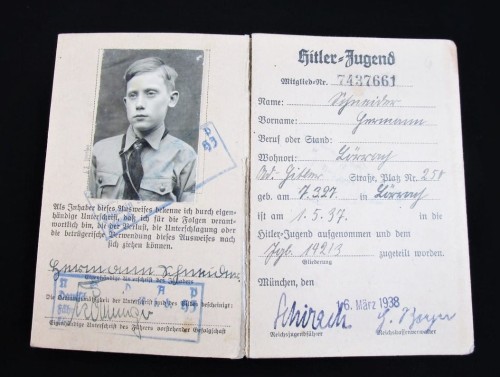 Als Inhaber dieses Ausweises bekenne ich durch eigen-
händige Unterschrift, daß ich für die Folgen verant-
wortlich bin, die der Verlust, die Unterschlagung oder
die betrügerische Verwendung dieses Ausweises nach
sich ziehen können.
Hermann Schneider
Eigenhändige Unterschrift des Inhabers
Eigenhändige Unterschrift des Führers vorstehender Gefolgschaft
Hitler-Jugend
Mitglied-Nr. 7437661
Name: Schneider
Vorname: Hermann
Beruf oder Stand:
Wohnort: Lörrach
Ad. Hitler Straße, Platz Nr. 250
geb. am 7.3.27. in Lörrach
ist am 1.5.37. in die
Hitler-Jugend aufgenommen und dem
142/3 zugeteilt worden.
Gliederung
München, den
16. März 1938
Schirach
Reichsjugendführer Reichskassenverwalter